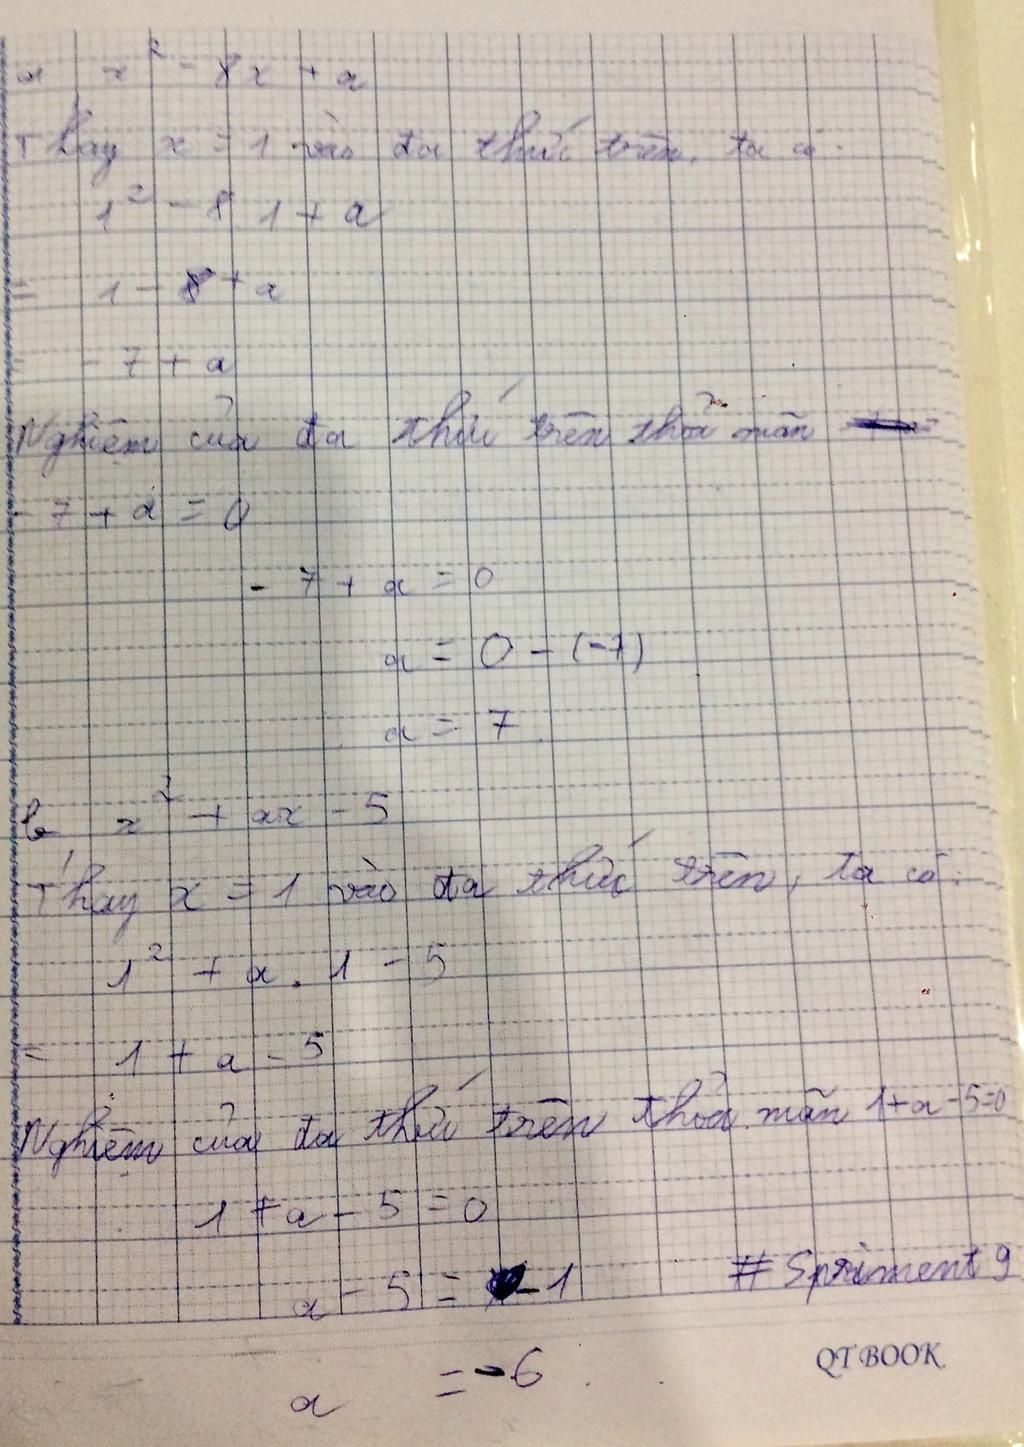 a x² - 8x + a
Thay x = 1 vào đa thức trên, ta có:
1² - 8.1 + a
= 1 - 8 + a
= - 7 + a
Nghiệm của đa thức trên thỏa mãn
- 7 + a = 0
- 7 + a = 0
a = 0 - (-7)
a = 7
b x² + ax - 5
Thay x = 1 vào đa thức trên, ta có:
1² + a . 1 - 5
= 1 + a - 5
Nghiệm của đa thức trên thỏa mãn 1+a-5=0
1 + a - 5 = 0
a - 5 = -1
# Spriment 9
a = -6
QT BOOK